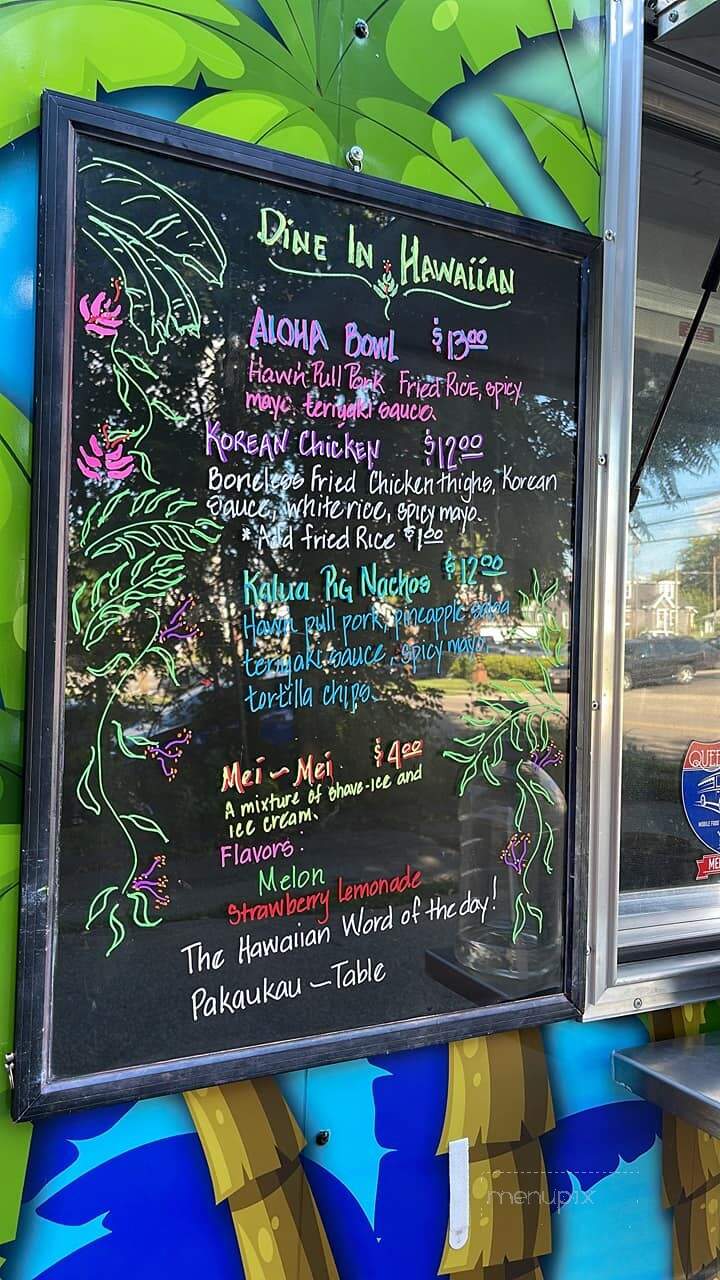 Dine In Hawaiian
Aloha Bowl $13.00
Haw'n Pull Pork Fried Rice, spicy
mayo teriyaki sauce.
Korean Chicken $12.00
Boneless Fried Chicken thighs, Korean
Sauce, white rice, spicy mayo.
* Add fried Rice $1.00
Kalua Pig Nachos $12.00
Haw'n pull pork, pineapple salsa
teriyaki sauce, spicy mayo,
tortilla chips.
Mei-Mei $4.00
A mixture of shave-ice and
ice cream.
Flavors:
Melon
Strawberry Lemonade
The Hawaiian Word of the day!
Pakaukau - Table
menupix